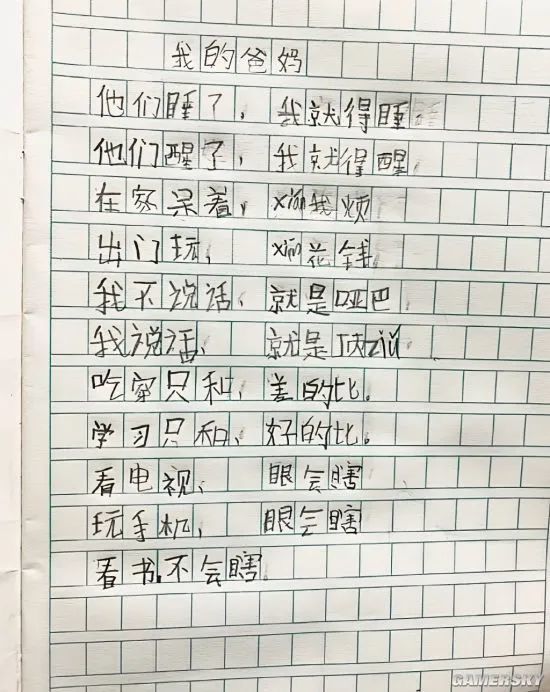 我的爸妈
他们睡了，我就得睡
他们醒了，我就得醒
在家呆着，xián我烦
出门玩，xián花钱
我不说话，就是哑巴
我说话，就是顶zuǐ
吃穿只和，差的比。
学习只和，好的比。
看电视，眼会瞎
玩手机，眼会瞎
看书不会瞎
GAMERSKY